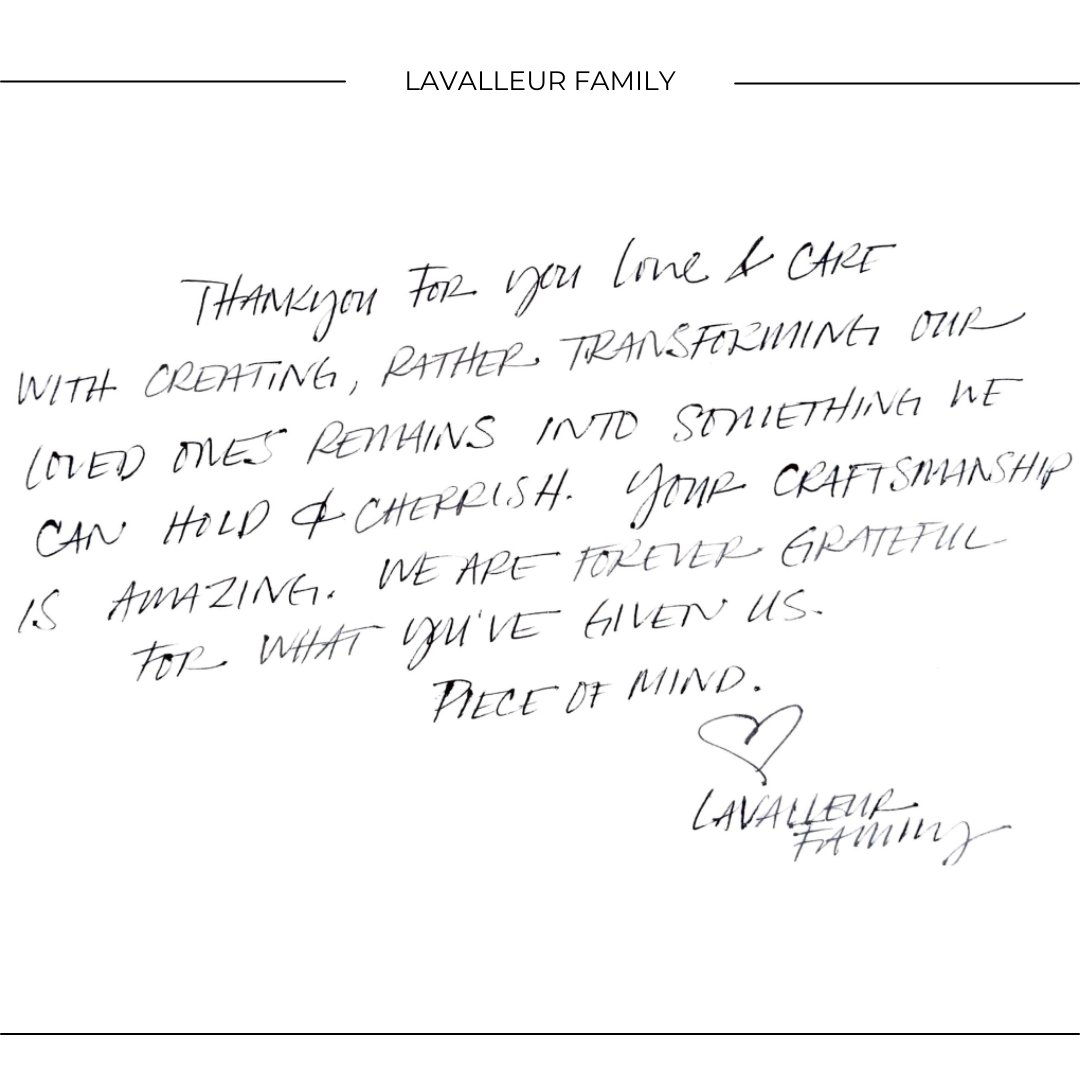 LAVALLEUR FAMILY
THANKYOU FOR YOU LOVE & CARE
WITH CREATING, RATHER TRANSFORMING OUR
LOVED ONES REMAINS INTO SOMETHING WE
CAN HOLD & CHERRISH. YOUR CRAFTSMANSHIP
IS AMAZING. WE ARE FOREVER GRATEFUL
FOR WHAT YOU'VE GIVEN US.
PIECE OF MIND.
LAVALLEUR
FAMILY